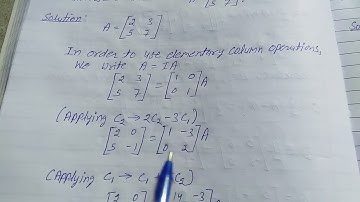 5 7
Solution:
A = [2 3
5 7]
In order to use elementary column operations,
We write A = IA
[2 3
5 7] = [1 0
0 1] A
(Applying C₂ → 2C₂ - 3C₁)
[2 0
5 -1] = [1 -3
0 2] A
(Applying C₁ → C₁ C₂)
[2 0 -3